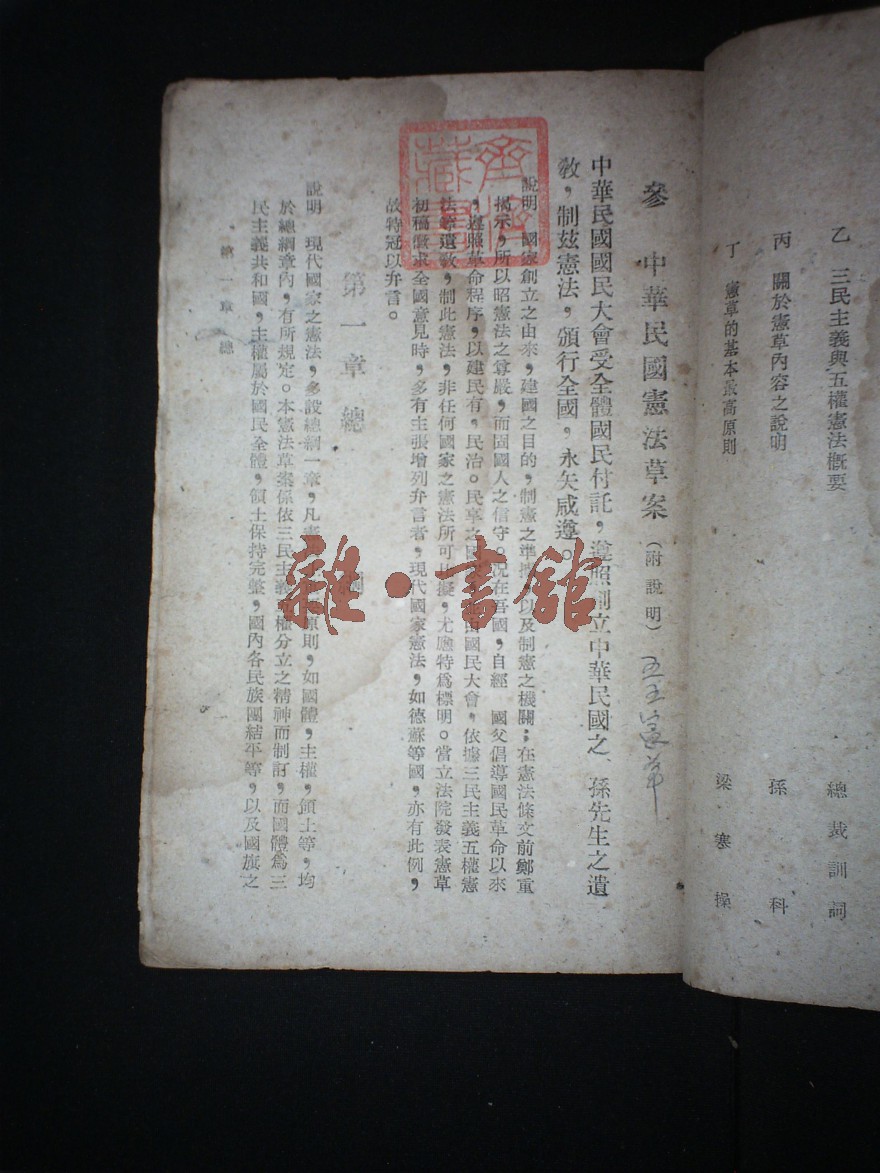 乙　三民主義與五權憲法概要　總裁訓詞
丙　關於憲草內容之說明　孫　科
丁　憲草的基本最高原則　梁寒操
參　中華民國憲法草案（附說明）五五憲草
中華民國國民大會受全體國民付託，遵照創立中華民國之　孫先生之遺
教，制茲憲法，頒行全國，永矢咸遵。
說明　國家創立之由來，建國之目的，制憲之準據以及制憲之機關；在憲法條文前鄭重
揭示，所以昭憲法之尊嚴，而固國人之信守。況在吾國，自經　國父倡導國民革命以來
，遵照革命程序，以建民有，民治。民享之國，由國民大會，依據三民主義五權憲
法等遺教，制此憲法，非任何國家之憲法所可比擬，尤應特爲標明。當立法院發表憲草
初稿徵求全國意見時，多有主張增列弁言者，現代國家憲法，如德蘇等國，亦有此例，
故特冠以弁言。
第一章　總　綱
說明　現代國家之憲法，多設總綱一章，凡憲原則，如國體，主權，領土等，均
於總綱章內，有所規定。本憲法草案係依三民主義五權分立之精神而制訂，而國體爲三
民主義共和國，主權屬於國民全體，領土保持完整，國內各民族團結平等，以及國旗之
第一章　總
齊藏書
雜·書館